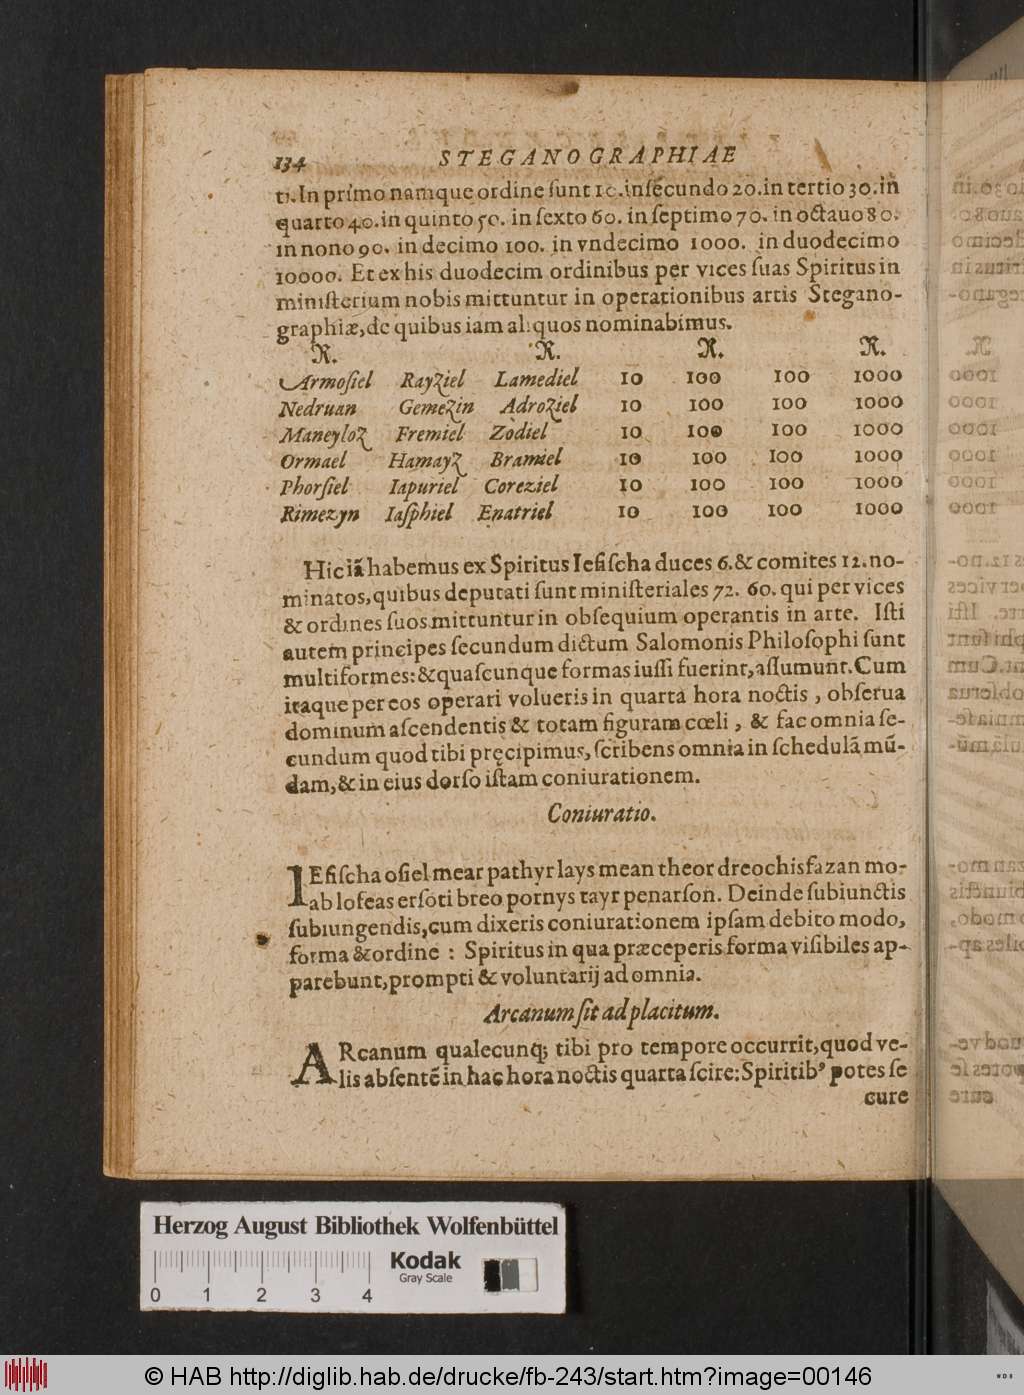 134 STEGANOGRAPHIAE
ti. In primo namque ordine sunt 10. in secundo 20. in tertio 30. in
quarto 40. in quinto 50. in sexto 60. in septimo 70. in octauo 80.
in nono 90. in decimo 100. in vndecimo 1000. in duodecimo
10000. Et ex his duodecim ordinibus per vices suas Spiritus in
ministerium nobis mittuntur in operationibus artis Stegano-
graphiæ, de quibus iam aliquos nominabimus.
R. R. R. R.
Armosiel Rayziel Lamediel 10 100 100 1000
Nedruan Gemezin Adroziel 10 100 100 1000
Maneyloz Fremiel Zodiel 10 100 100 1000
Ormael Hamayz Bramiel 10 100 100 1000
Phorsiel Iapuriel Coreziel 10 100 100 1000
Rimezyn Iasphiel Enatriel 10 100 100 1000
Hic iã habemus ex Spiritus Iefischa duces 6. & comites 12. no-
minatos, quibus deputati sunt ministeriales 72. 60. qui per vices
& ordines suos mittuntur in obsequium operantis in arte. Isti
autem principes secundum dictum Salomonis Philosophi sunt
multiformes: & quascunque formas iussi fuerint, assumunt. Cum
itaque per eos operari volueris in quarta hora noctis, obserua
dominum ascendentis & totam figuram cœli, & fac omnia se-
cundum quod tibi pręcipimus, scribens omnia in schedulã mũ-
dam, & in eius dorso istam coniurationem.
Coniuratio.
IEfischa osiel mear pathyr lays mean theor dreochis fazan mo-
ab lofeas ersoti breo pornys tayr penarson. Deinde subiunctis
subiungendis, cum dixeris coniurationem ipsam debito modo,
forma & ordine : Spiritus in qua præceperis forma visibiles ap-
parebunt, prompti & voluntarij ad omnia.
Arcanum sit ad placitum.
ARcanum qualecunq; tibi pro tempore occurrit, quod ve-
lis absentẽ in hac hora noctis quarta scire: Spiritib⁹ potes se
cure
Herzog August Bibliothek Wolfenbüttel
Kodak
Gray Scale
0 1 2 3 4
© HAB http://diglib.hab.de/drucke/fb-243/start.htm?image=00146